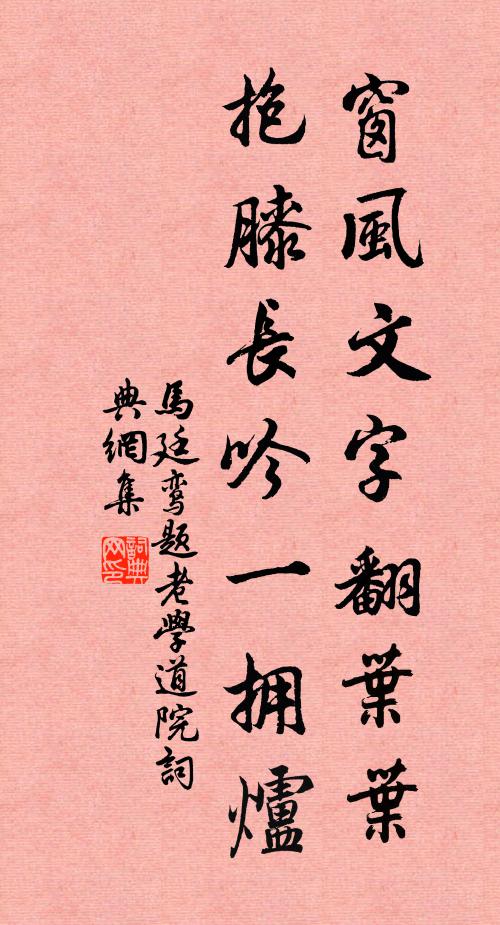 窗風文字翻葉葉
抱膝長吟一拥爐
馬廷鸾题老學道院詞
典網集
詞典网印